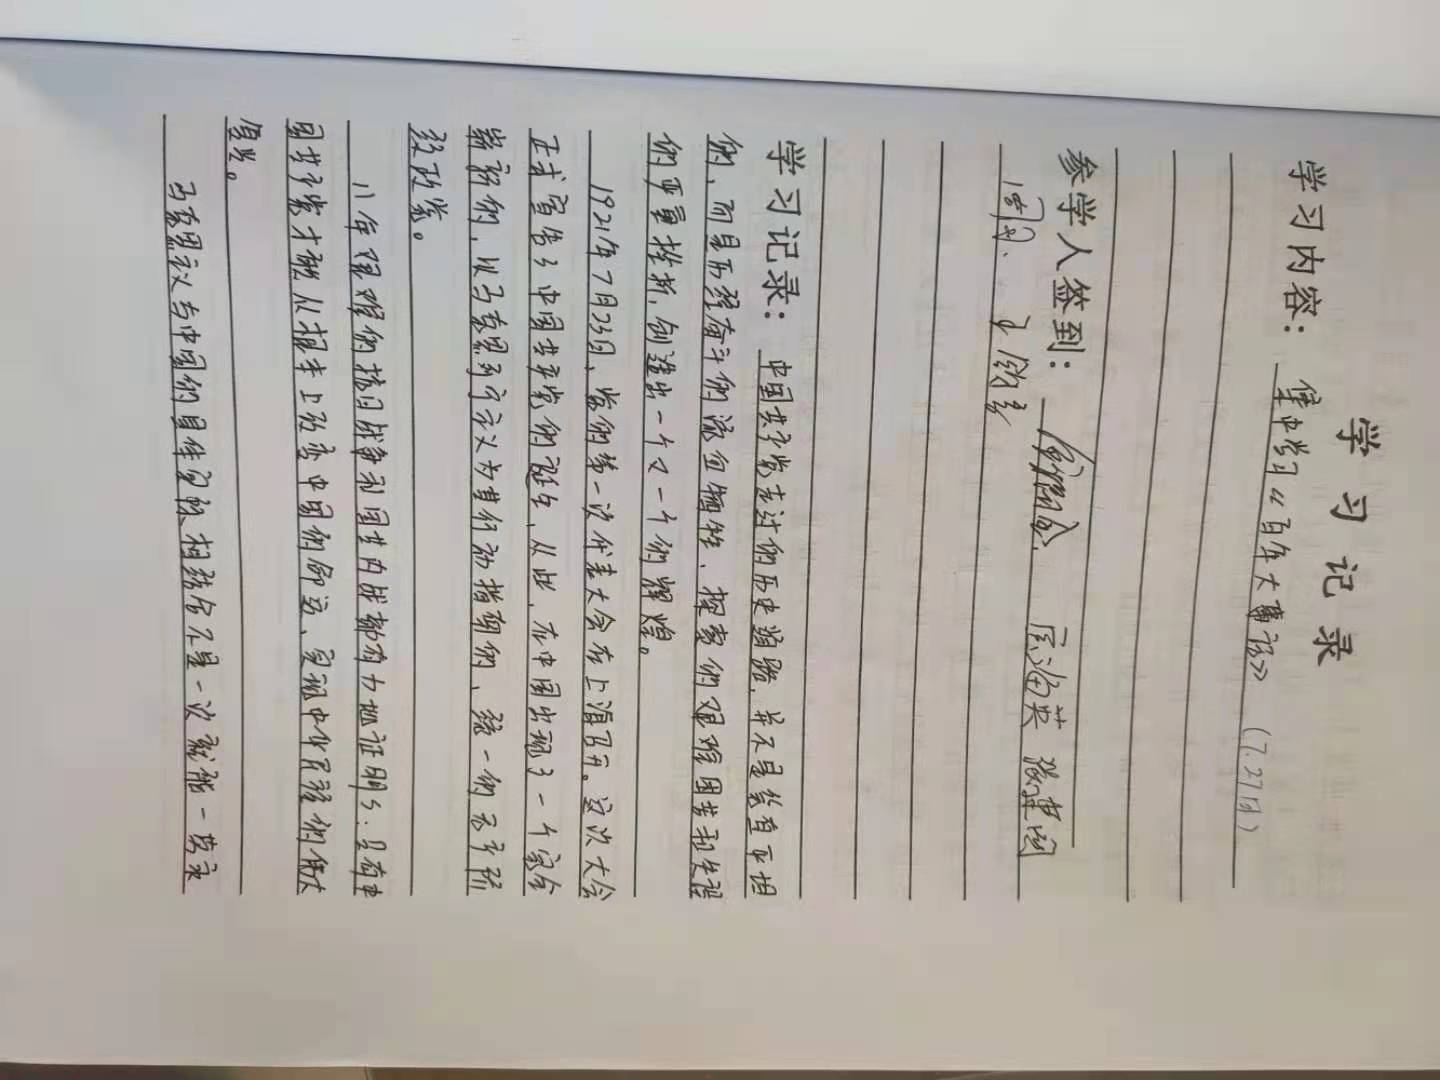 学习记录
学习内容： 集中学习《百年大事记》 （7.27日）
参学人签到： 宗海英 张建国
周丹. 王
学习记录： 中国共产党走过的历史道路，并不是笔直平坦
的，而是历经奋斗的流血牺牲、探索的艰难困苦和失误
的严重挫折，创造出一个又一个的辉煌。
1921年7月23日，党的第一次代表大会在上海召开。这次大会
正式宣告了中国共产党的诞生，从此，在中国出现了一个完全
崭新的，以马克思列宁主义为其行动指南的，统一的无产阶
级政党。
八年艰难的抗日战争和国共内战都有力地证明了：只有中
国共产党才能从根本上改变中国的命运、实现中华民族的伟大
复兴。
马克思主义与中国的具体实际相结合不是一次就能一劳永